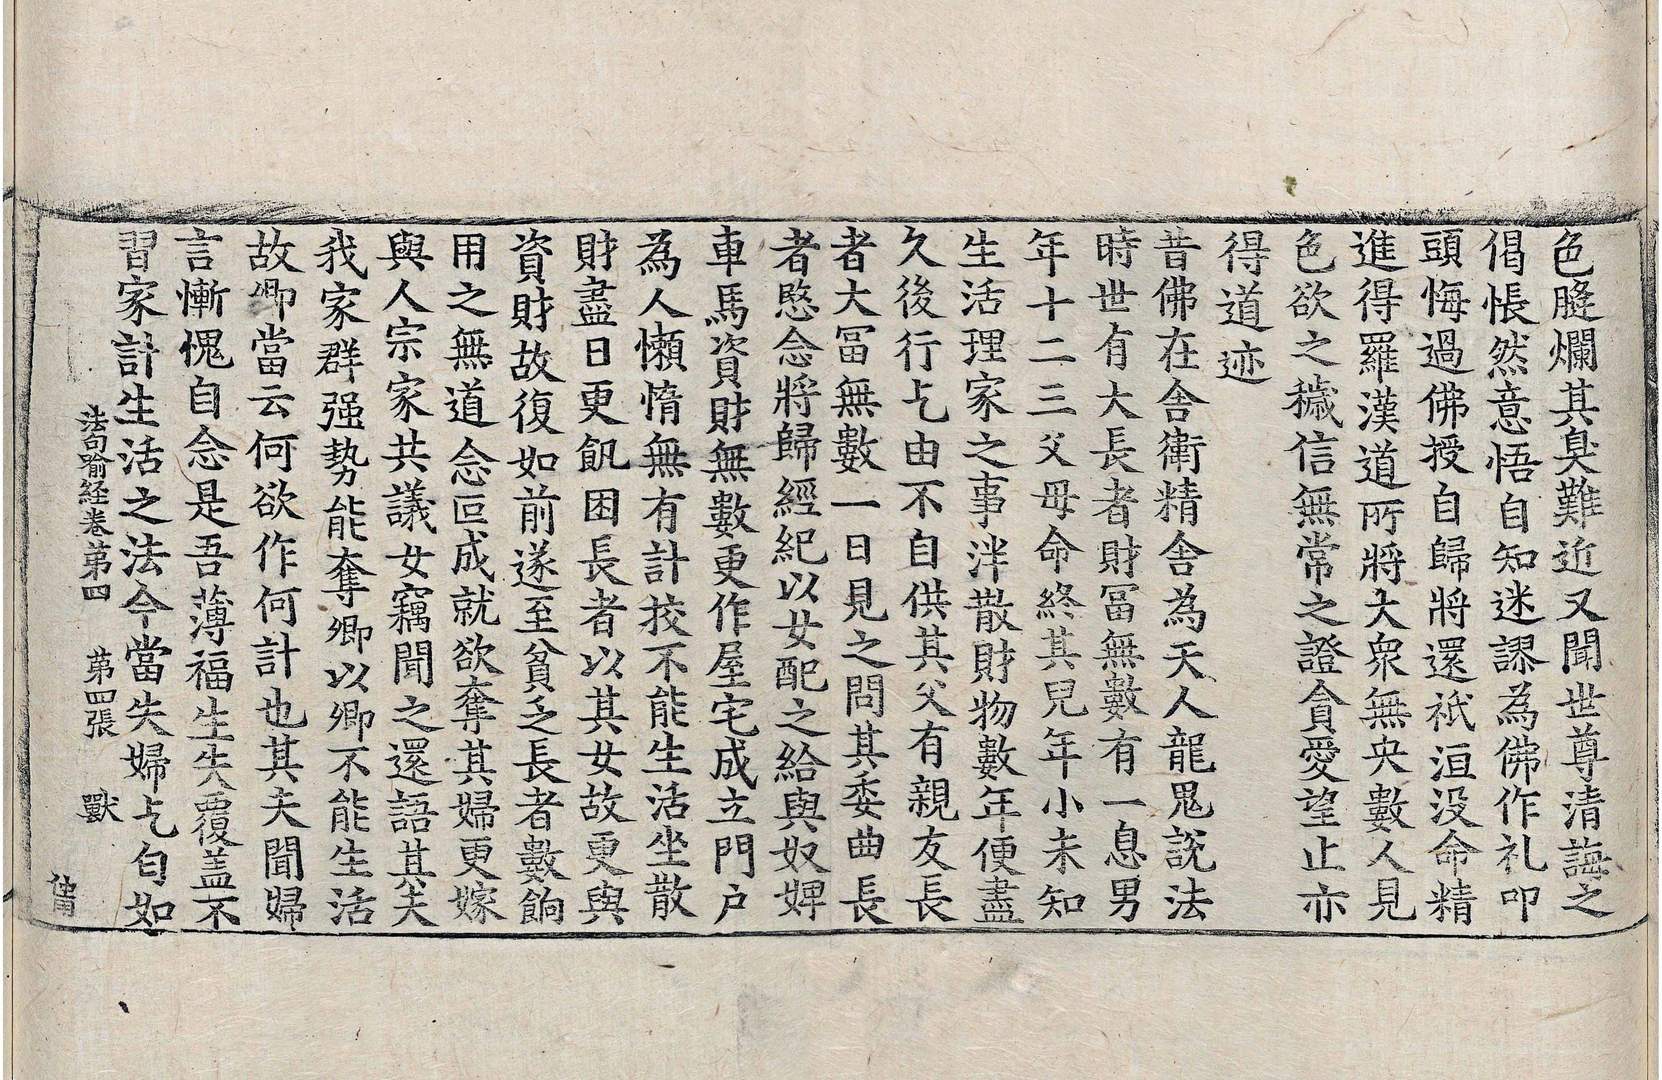 色膖爛其臭難近又聞世尊清誨之
偈悵然意悟自知迷謬為佛作礼叩
頭悔過佛授自歸將還祇洹没命精
進得羅漢道所將大衆無央數人見
色欲之穢信無常之證貪愛望止亦
得道迹
昔佛在舎衛精舎為天人龍鬼說法
時世有大長者財冨無數有一息男
年十二三父母命終其兒年小未知
生活理家之事泮散財物數年便盡
久後行乞由不自供其父有親友長
者大冨無數一日見之問其委曲長
者愍念將歸經紀以女配之給與奴婢
車馬資財無數更作屋宅成立門户
為人懶惰無有計挍不能生活坐散
財盡日更飢困長者以其女故更與
資財故復如前遂至貧乏長者數餉
用之無道念叵成就欲奪其婦更嫁
與人宗家共議女竊聞之還語其夫
我家群强勢能奪卿以卿不能生活
故卿當云何欲作何計也其夫聞婦
言慚愧自念是吾薄福生失覆盖不
習家計生活之法今當失婦乞匃如
法句喻経卷第四 第四張 獸